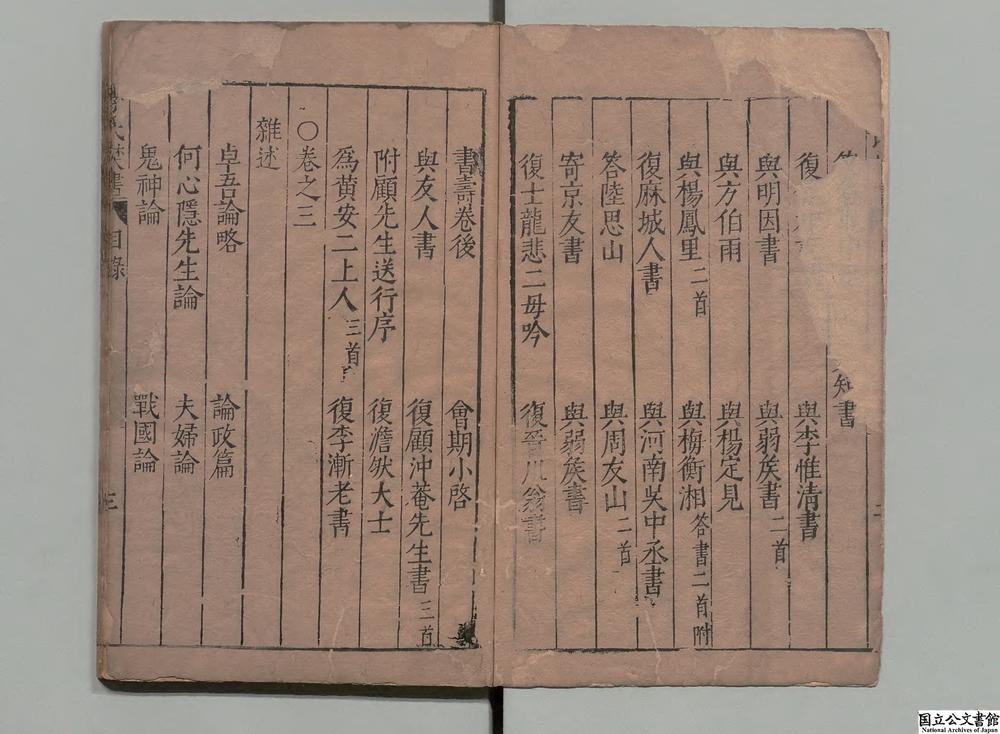 知書
復 與李惟清書
與明因書 與弱矦書二首
與方伯雨 與楊定見
與楊鳳里二首 與梅衡湘答書二首附
復麻城人書 與河南吳中丞書
答陸思山 與周友山二首
寄京友書 與弱矦書
復士龍悲二毋吟 復晉川翁書
書壽卷後 會期小啓
與友人書 復顧沖菴先生書三首
附顧先生送行序 復澹然大士
爲黃安二上人三首 復李漸老書
○卷之三
雜述
卓吾論略 論政篇
何心隱先生論 夫婦論
鬼神論 戰國論
氏 書 目錄 三
国立公文書館
National Archives of Japan